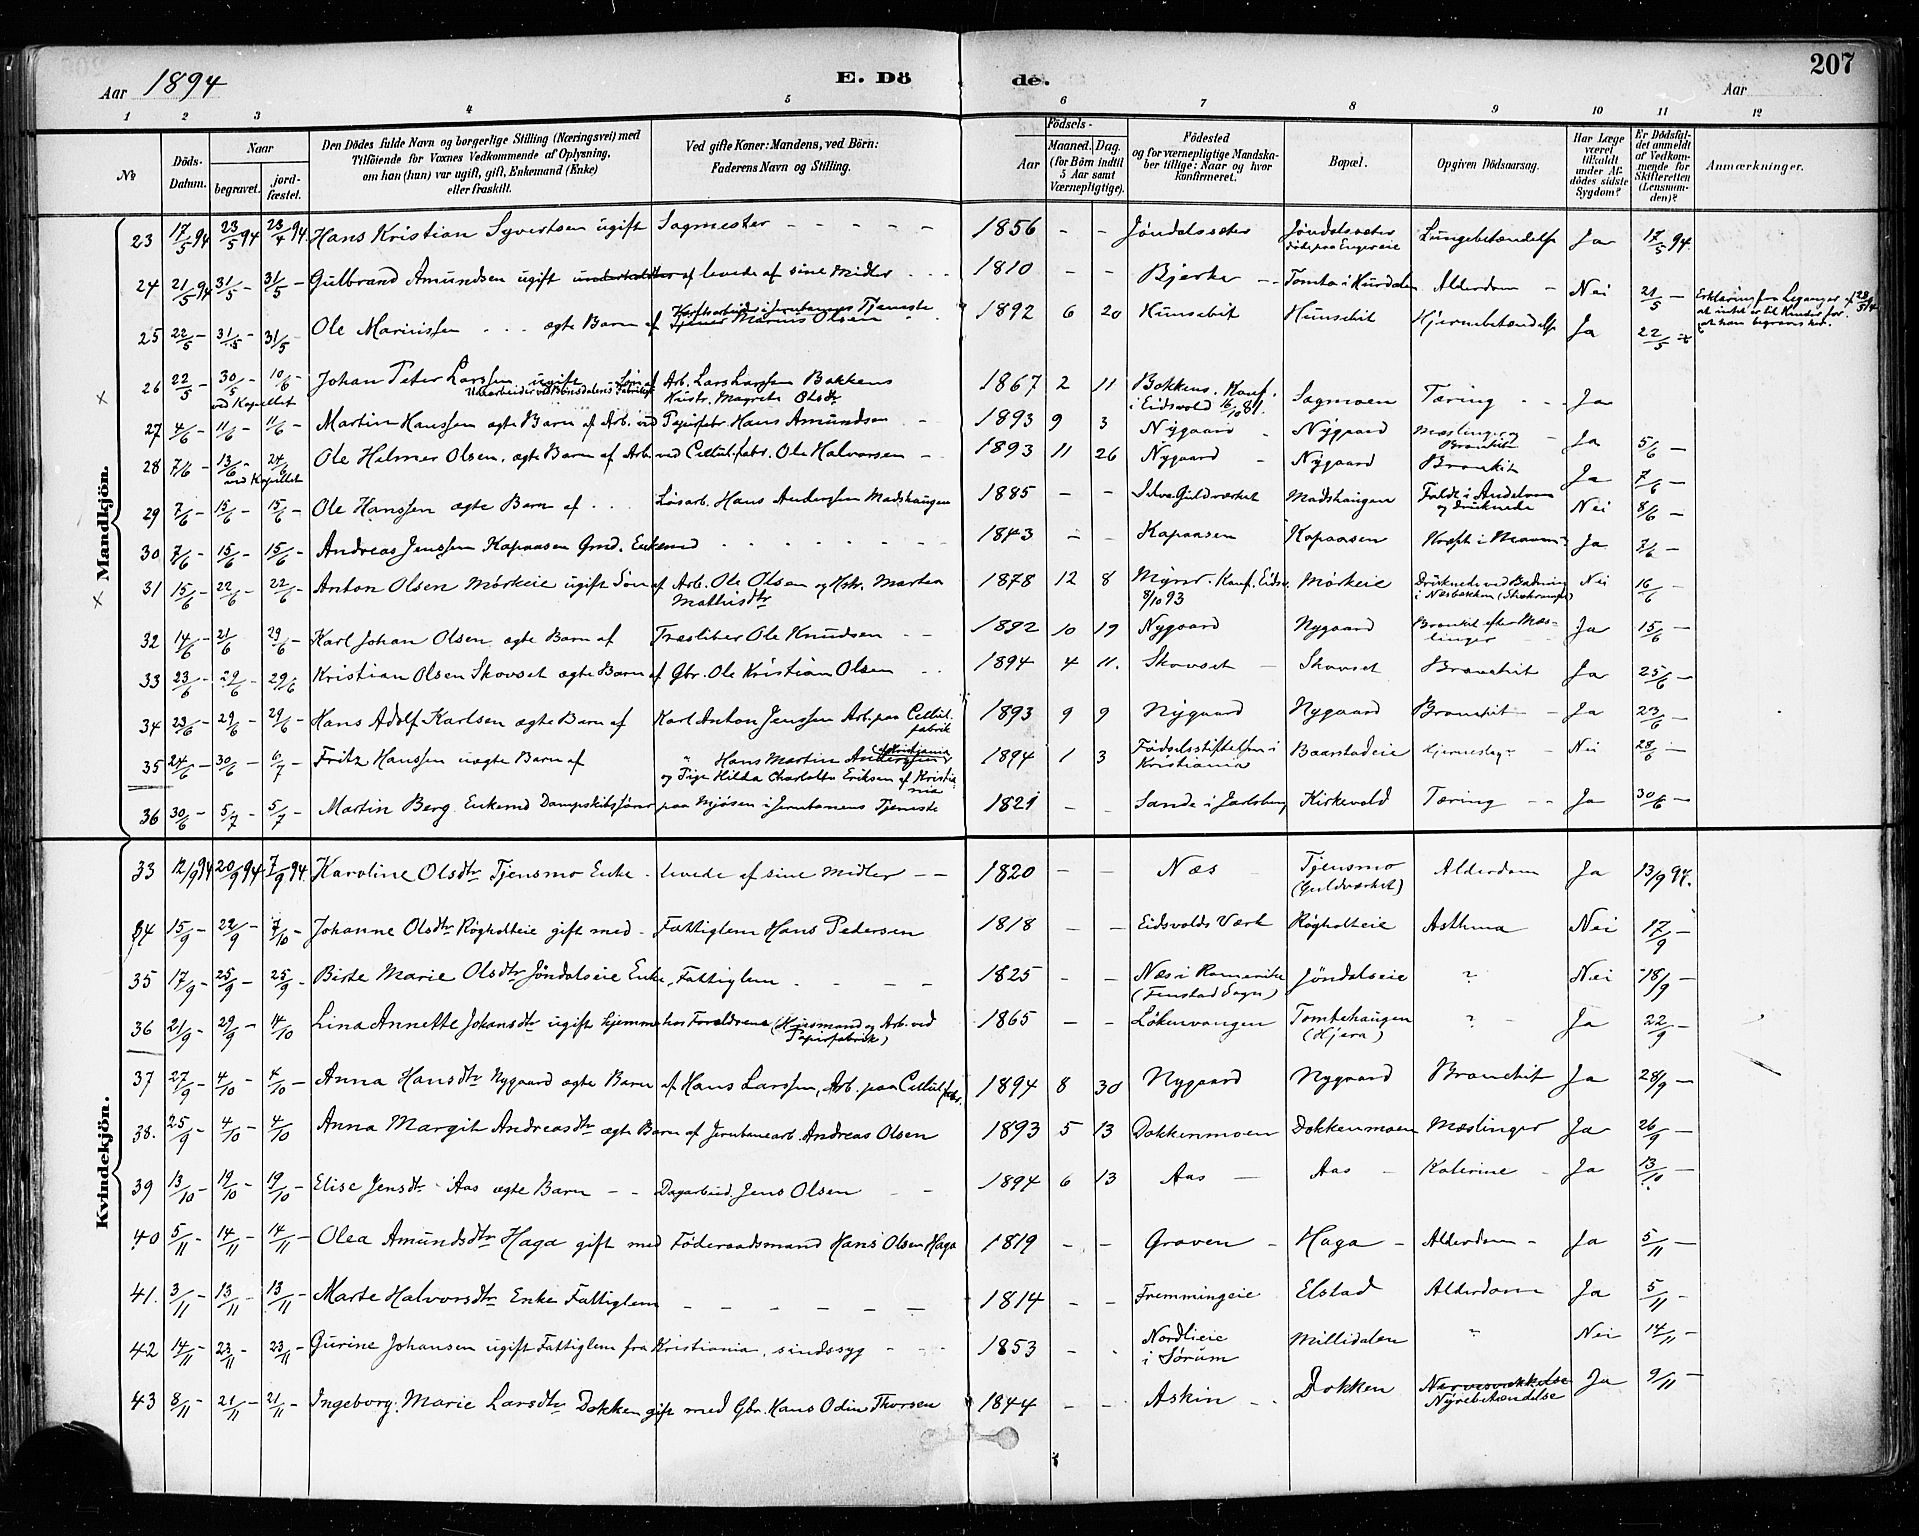 207
Aar 1894
E. Dö de.
Aar
1 2 3 4 5 6 7 8 9 10 11 12
No
Döds-Datum.
Naar
begravet.
jordfæstet.
Den Dödes fulde Navn og borgerlige Stilling (Næringsvei) med Tilföiende for Voxnes Vedkommende af Oplysning, om han (hun) var ugift, gift, Enkemand (Enke) eller fraskilt.
Ved gifte Koner: Mandens, ved Börn: Faderens Navn og Stilling.
Födsels-
Aar
Maaned. Dag.
(for Börn indtil 5 Aar samt Værnepligtige).
Födested og for værnepligtige Mandskaber tillige: Naar og hvor konfirmeret.
Bopæl.
Opgiven Dödsaarsag.
Har Læge været tilkaldt under Afdödes sidste Sygdom?
Er Dödsfaldet anmeldt af Vedkommende for Skifteretten (Lensmanden)?
Anmærkninger.
Mandkjön.
23 17/5 94 23/5 94 23/4 94 Hans Kristian Syvertsen ugift Sagmester - - 1856 - - Jøndalsæter Jøndalsæter Lungebetændelse Ja 17/5 94.
døde paa Engereie
24 21/5 94 31/5 - 31/5 Gulbrand Amundsen ugift levede af sine Midler 1810 - - Bjerke - Tomta i Hurdalen Alderdom - Nei 21/5 - Erklæring fra
at intet er til Hinder for
at han begraves her.
25 22/5 - 31/5 - 31/5 Ole Mariussen ægte Barn af Marius Olsen 1892 6 20 Hunsebit Hunsebit Hjernebetændelse Ja 22/5
26 22/5 - 30/5 - 10/6 - Johan Peter Larssen ugift Søn af Arb. Lars Larssen Bakkens 1867 2 11 Bakkens. Konf. Sagmoen Tæring - Ja
ved Kapellet Hustr. Magrete Olsdtr i Eidsvold 16/10 81.
27 4/6 - 11/6 - 11/6 Martin Hanssen ægte Barn af Arb. ved Papirfabr. Hans Amundsen 1893 9 3 Nygaard - Nygaard Mæslinger og Bronkit Ja 5/6 -
28 7/6 - 13/6 - 24/6 Ole Helmer Olsen, ægte Barn af Arb. ved Cellul.fabr. Ole Halvorsen - 1893 11 26 Nygaard - Nygaard Bronkit Ja 7/6 -
ved Kapellet
29 7/6 - 15/6 - 15/6 - Ole Hanssen ægte Barn af Løsarb. Hans Anderssen Madshaugen 1885 - - Guldværket Madshaugen Faldt i Andelven og druknede Nei 8/6 -
30 7/6 - 15/6 - 15/6 - Andreas Jenssen Kapaasen Grd. Enkemd - - 1843 - - Kapaasen Kapaasen Kræft i Maven Ja 7/6 -
31 15/6 - 22/6 - 22/6 - Anton Olsen Mørkeie ugift Søn af Arb. Ole Olsen og Hstr. Martea 1878 12 8 Konf. Eidsv. Mørkeie Druknede ved Badning Nei 16/6 -
Mathisdtr 8/10 93
32 14/6 - 21/6 23/6 - Karl Johan Olsen ægte Barn af Træsliber Ole Knudsen - - 1892 10 19 Nygaard Nygaard Bronkit efter Mæslinger Ja 15/6 -
33 23/6 - 29/6 - 29/6 Kristian Olsen Skovset ægte Barn af Gbr. Ole Kristian Olsen 1894 4 11. Skovset - Skovset Bronchit Ja 25/6 -
34 23/6 - 29/6 - 29/6 - Hans Adolf Karlsen ægte Barn af Karl Anton Jenssen Arb. paa Cellul. fabrik 1893 9 9 Nygaard Nygaard Bronchit - Ja 23/6 -
35 24/6 - 30/6 - 6/7 Fritz Hanssen uægte Barn af " Hans Martin Anderssen 1894 1 3 Fødselsstiftelsen i Kristiania Baarstadeie Hjerneslag - Nei 28/6 -
og Pige Hilda Charlotte Eriksen af Kristiania
36 30/6 - 5/7 - 5/7 - Martin Berg. Enkemd Dampskibsfører paa Mjøsen i Jernbanens Tjeneste 1821 - - Sande i Jarlsberg Kirkevold Tæring - - Ja 30/6 -
Kvindekjön.
33 12/9 94 20/9 94 7/9 94. Karoline Olsdtr Tjensmo Enke - levede af sine Midler - - 1820 - - Næs Tjensmo (Guldværket) Alderdom Ja 13/9 94.
34 15/9 - 22/9 - 7/10 - Johanne Olsdtr Røgholteie gift med - Fattiglem Hans Pedersen 1818 - - Eidsvolds Værk Røgholteie Asthma Nei 17/9 -
35 17/9 - 25/9 - 25/9 - Birte Marie Olsdtr Jøndalseie Enke, Fattiglem - - 1825 - - Næs i Romerike (Fenstad Sogn) Jøndalseie ? Nei 18/9 -
36 21/9 - 29/9 - 14/10 Lina Annette Johansdtr ugift hjemme hos Forældrene (Husmand og Arb. ved Papirfabrik) 1865 - - Løkenvangen Tomtehaugen (Hjera) ? Ja 22/9 -
37 27/9 - 4/10 - 4/10 - Anna Hansdtr Nygaard ægte Barn af Hans Larssen, Arb. paa Cellul.fabr. 1894 8 30 Nygaard Nygaard Bronchit Ja 28/9 -
38. 25/9 - 4/10 - 4/10 - Anna Margit Andreasdtr ægte Barn af Jernbanearb Andreas Olsen 1893 5 13 Dokkenmoen Dokkenmoen Mæslinger Ja 26/9 -
39 13/10 - 19/10 - 19/10 - Elise Jensdtr Aas ægte Barn - - Dagarbeid. Jens Olsen - - 1894 6 13 Aas - Aas - Kolerine - Ja 13/10 -
40 5/11 - 14/11 - 14/11 - Olea Amundsdtr Haga gift med Føderaadsmand Hans Olsen Haga 1819 - - Graven - Haga - Alderdom - Ja 5/11 -
41. 3/11 - 13/11 - 13/11 - Marte Halvorsdtr Enke Fattiglem - - 1814 - - Fremmingeie Elstad Alderdom Ja 5/11 -
42 14/11 - 23/11 - 23/11 - Gurine Johansen ugift Fattiglem fra Kristiania, sindssyg - - 1853 - - Nordlieie i Sørum Millidalen " Nei 14/11 -
43 8/11 - 21/11 - 21/11 - Ingeborg Marie Larsdtr Dokken gift med Gbr. Hans Odin Thorsen 1844 - - Askin - Dokken Nyrebetændelse Ja 9/11 -